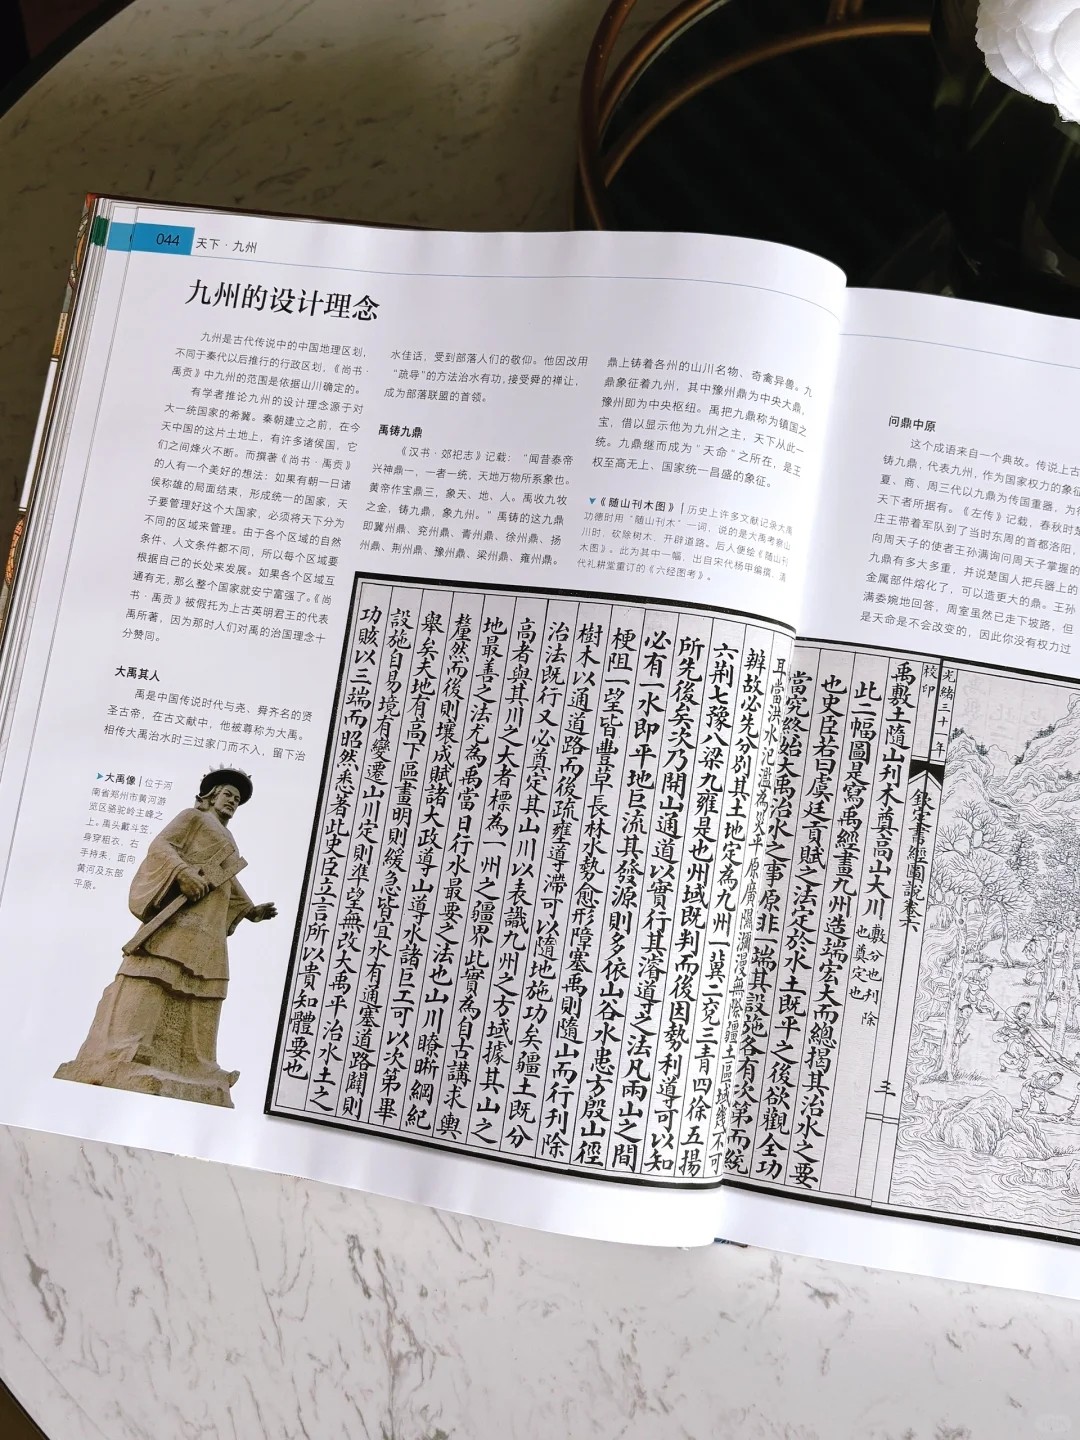 044
天下·九州
九州的设计理念
九州是古代传说中的中国地理区划，
不同于秦代以后推行的行政区划，《尚书·
禹贡》中九州的范围是依据山川确定的。
有学者推论九州的设计理念源于对
大一统国家的希冀。秦朝建立之前，在今
天中国的这片土地上，有许多诸侯国，它
们之间烽火不断。而撰著《尚书·禹贡》
的人有一个美好的想法：如果有朝一日诸
侯称雄的局面结束，形成统一的国家，天
子要管理好这个大国家，必须将天下分为
不同的区域来管理。由于各个区域的自然
条件、人文条件都不同，所以每个区域要
根据自己的长处来发展。如果各个区域互
通有无，那么整个国家就安宁富强了。《尚
书·禹贡》被假托为上古英明君王的代表
禹所著，因为那时人们对禹的治国理念十
分赞同。
大禹其人
禹是中国传说时代与尧、舜齐名的贤
圣古帝，在古文献中，他被尊称为大禹。
相传大禹治水时三过家门而不入，留下治
大禹像｜位于河
南省郑州市黄河游
览区骆驼岭主峰之
上。禹头戴斗笠，
身穿粗衣，右
手持耒，面向
黄河及东部
平原。
水佳话，受到部落人们的敬仰。他因改用
“疏导”的方法治水有功，接受舜的禅让，
成为部落联盟的首领。
禹铸九鼎
《汉书·郊祀志》记载：“闻昔泰帝
兴神鼎一，一者一统，天地万物所系象也。
黄帝作宝鼎三，象天、地、人。禹收九牧
之金，铸九鼎，象九州。”禹铸的这九鼎
即冀州鼎、兖州鼎、青州鼎、徐州鼎、扬
州鼎、荆州鼎、豫州鼎、梁州鼎、雍州鼎。
鼎上铸着各州的山川名物、奇禽异兽。九
鼎象征着九州，其中豫州鼎为中央大鼎，
豫州即为中央枢纽。禹把九鼎称为镇国之
宝，借以显示他为九州之主，天下从此一
统。九鼎继而成为“天命”之所在，是王
权至高无上、国家统一昌盛的象征。
《随山刊木图》｜历史上许多文献记录大禹
功德时用“随山刊木”一词，说的是大禹考察山
川时，砍除树木、开辟道路。后人便绘《随山刊
木图》。此为其中一幅，出自宋代杨甲编撰、清
代礼耕堂重订的《六经图考》。
问鼎中原
这个成语来自一个典故。传说上古
铸九鼎，代表九州，作为国家权力的象征
夏、商、周三代以九鼎为传国重器，为
天下者所据有。《左传》记载，春秋时楚
庄王带着军队到了当时东周的首都洛阳，
向周天子的使者王孙满询问周天子掌握的
九鼎有多大多重，并说楚国人把兵器上的
金属部件熔化了，可以造更大的鼎。王孙
满委婉地回答，周室虽然已走下坡路，但
是天命是不会改变的，因此你没有权力过
光緒三十一年
校印
欽定書經圖說卷六
三
禹敷土隨山刋木奠高山大川敷分也刋除
也奠定也
此二幅圖是寫禹經畫九州造端宏大而總揭其治水之要
也史臣若曰虞廷貢賦之法定於水土既平之後欲觀全功
當究終始大禹治水之事原非一端其設施各有次第而統
耳當洪水氾濫為災平原廣隰瀰漫無際疆土區域幾不可
辦故必先分別其土地定為九州一冀二兗三青四徐五揚
六荆七豫八梁九雍是也州域既判而後因勢利導可以知
所先後矣次乃開山通道以實行其濬導之法凡兩山之間
必有一水即平地巨流其發源則多依山谷水患方殷山徑
梗阻一望皆豐草長林水勢愈形障塞禹則隨山而行刋除
樹木以通道路而後疏壅導滯可以隨地施功矣疆土既分
治法既行又必奠定其山川以表識九州之方域據其山之
高者與其川之大者標為一州之疆界此實為自古講求輿
地最善之法尤為禹當日行水最要之法也山川瞭晰綱紀
釐然而後則壤成賦諸大政導山導水諸巨工可以次第畢
舉矣夫地有高下區畫明則緩急皆宜水有通塞道路闢則
設施自易境有變遷山川定則準望無改大禹平治水土之
功賅以三端而昭然悉著此史臣立言所以貴知體要也